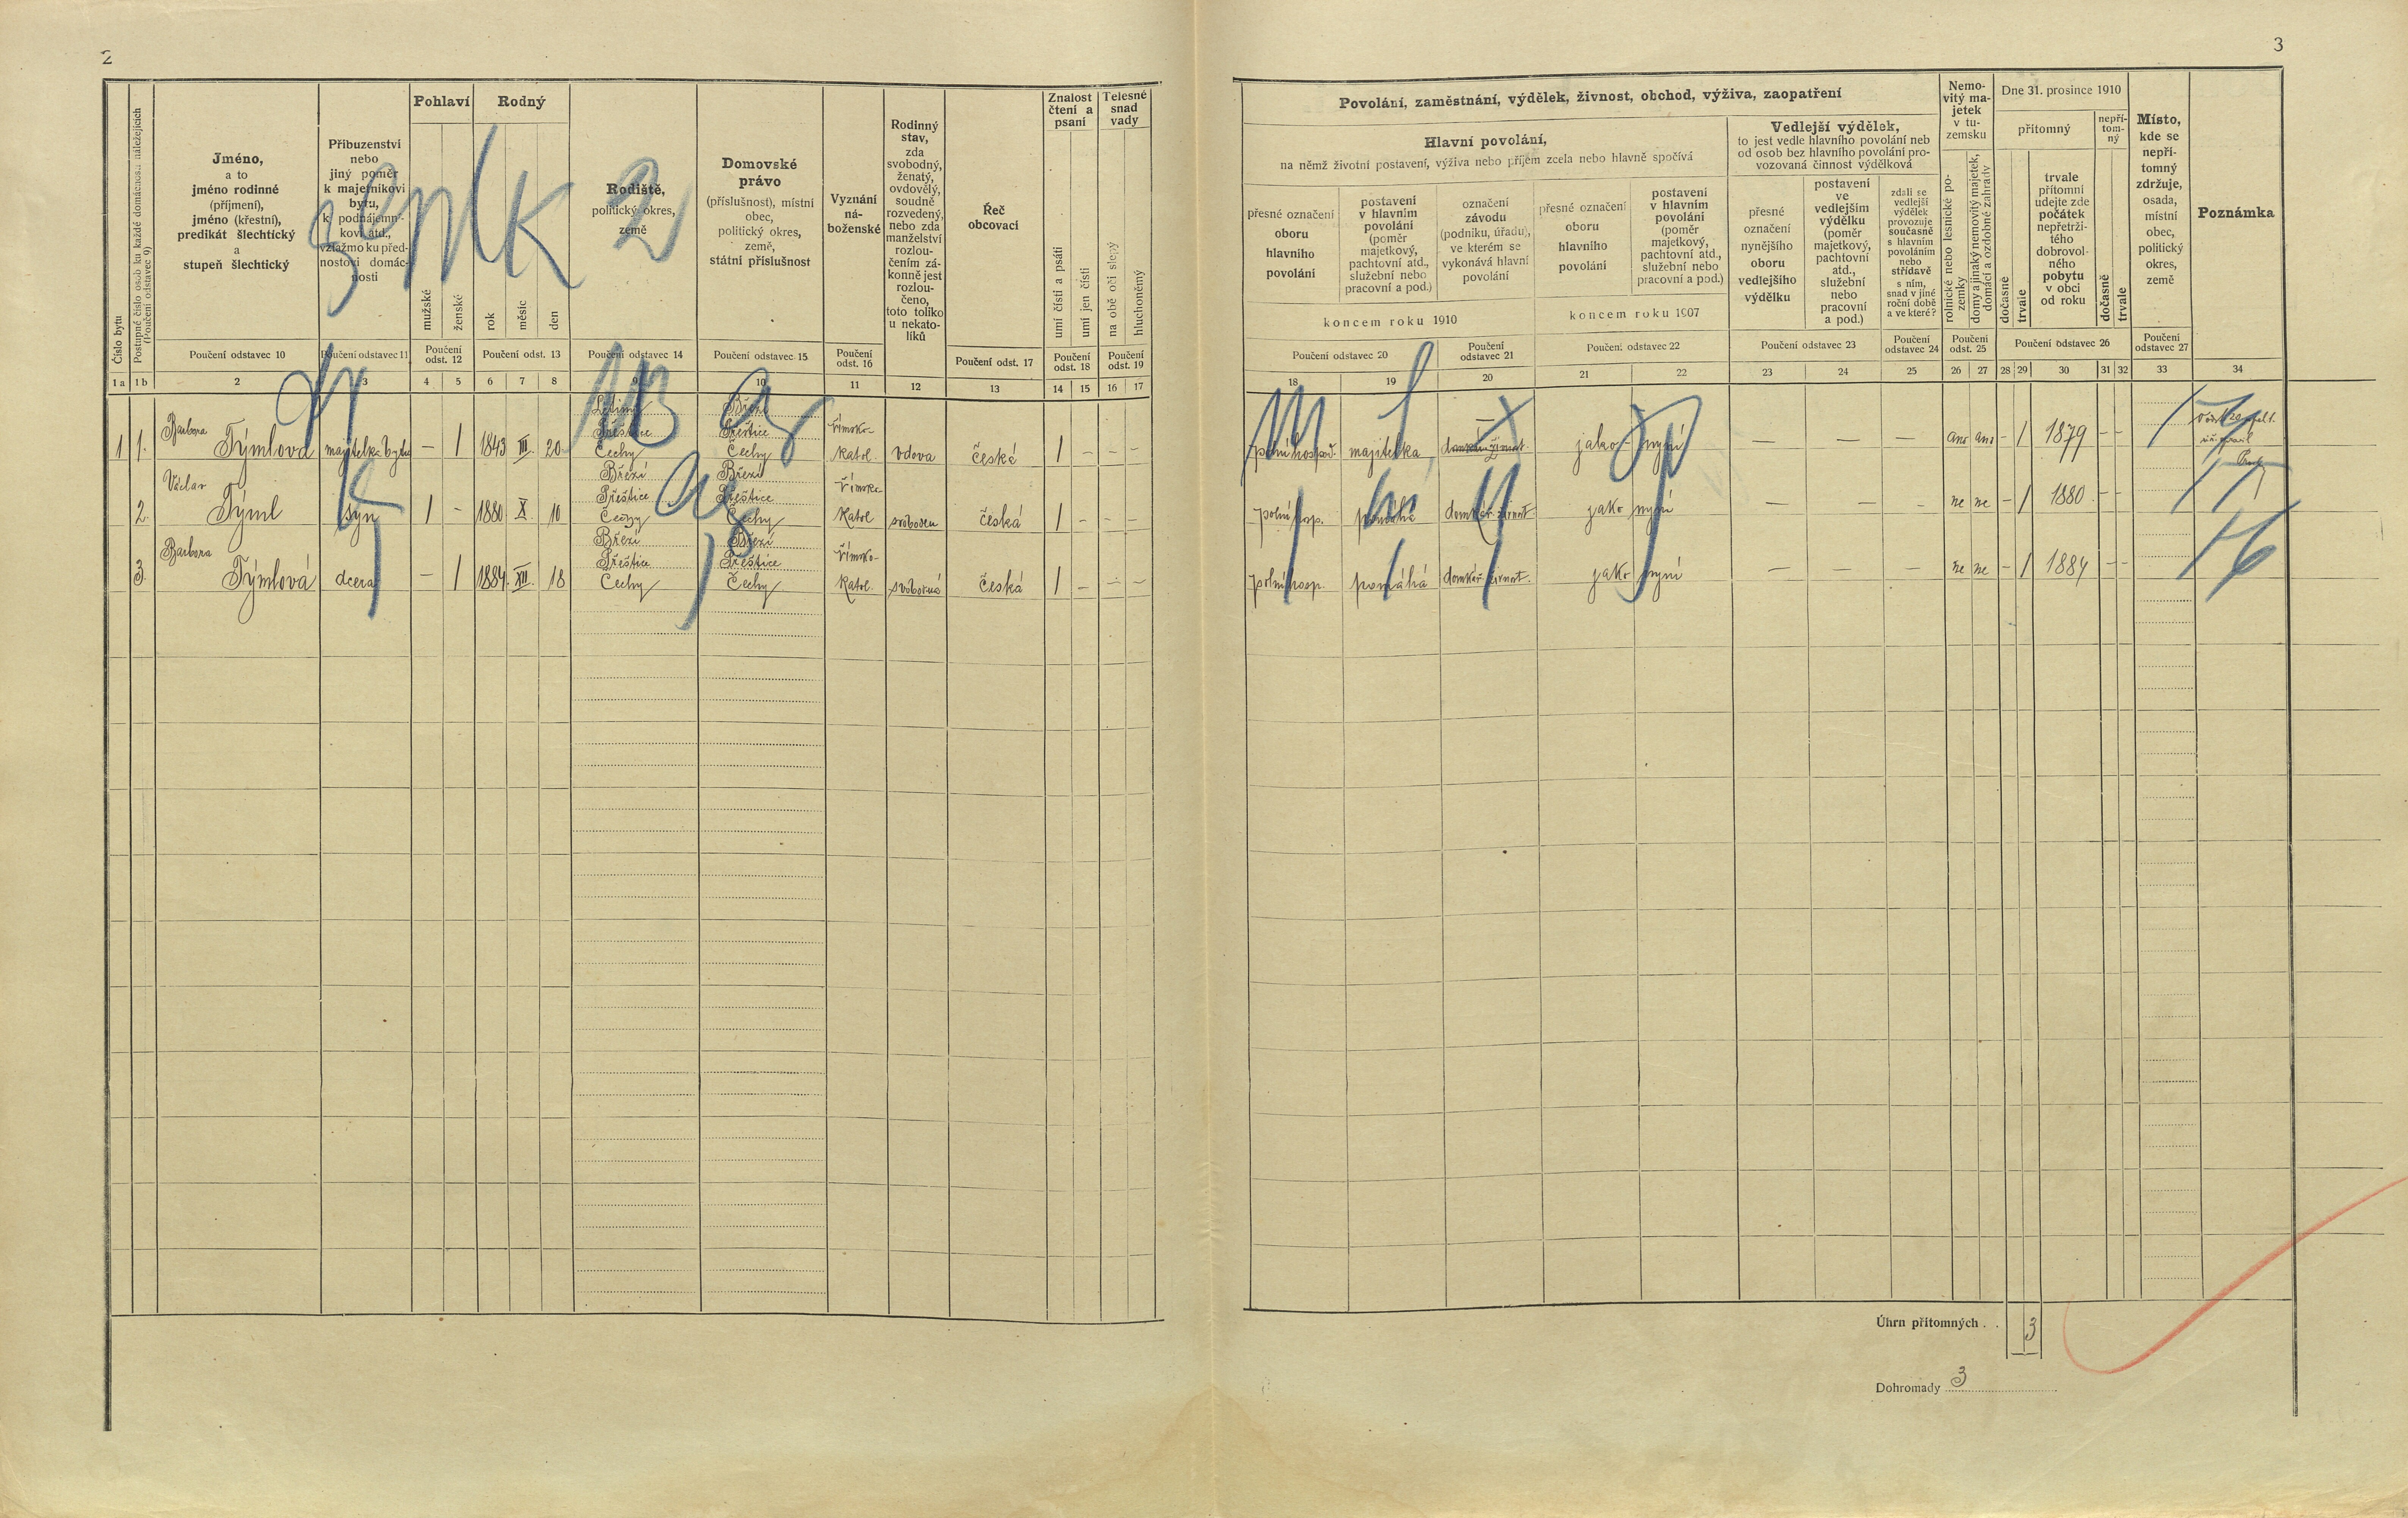 2
Číslo bytu
Postupné číslo osob ku každé domácnosti náležejících
(Poučení odstavec 9)
Jméno,
a to
jméno rodinné
(příjmení),
jméno (křestní),
predikát šlechtický
a
stupeň šlechtický
Příbuzenství
nebo
jiný poměr
k majetníkovi
bytu,
k podnájemní-
kovi atd.,
vztažmo ku před-
nostovi domác-
nosti
Pohlaví
mužské
ženské
Rodný
rok
měsíc
den
Rodiště,
politický okres,
země
Domovské
právo
(příslušnost), místní
obec,
politický okres,
země,
státní příslušnost
Vyznání
ná-
boženské
Rodinný
stav,
zda
svobodný,
ženatý,
ovdovělý,
soudně
rozvedený,
nebo zda
manželství
rozlou-
čením zá-
konně jest
rozlou-
čeno,
toto toliko
u nekato-
líků
Řeč
obcovací
Znalost
čtení a
psaní
umí čísti a psáti
umí jen čísti
Telesné
snad
vady
na obě oči slepý
hluchoněmý
Poučení odstavec 10
Poučení odstavec 11
Poučení
odst. 12
Poučení odst. 13
Poučení odstavec 14
Poučení odstavec 15
Poučení
odst. 16
Poučení odst. 17
Poučení
odst. 18
Poučení
odst. 19
1 a 1 b 2 3 4 5 6 7 8 9 10 11 12 13 14 15 16 17
Barbora Přeštice Březí Přeštice římsko-
1 1. Týmlová majitelka bytu — 1 1843 III. 20 Čechy Čechy katol. vdova česká 1 – – –
Václav Březí Březí
Přeštice Přeštice římsko-
2. Týml syn 1 – 1880 X. 10 Čechy Čechy katol svoboden česká 1 – – –
Barbora Březí Březí
Přeštice Přeštice římsko-
3. Týmlová dcera — 1 1884 XII. 18 Čechy Čechy katol. svobodná česká 1 – – –
3
Povolání, zaměstnání, výdělek, živnost, obchod, výživa, zaopatření
Hlavní povolání,
na němž životní postavení, výživa nebo příjem zcela nebo hlavně spočívá
přesné označení
oboru
hlavního
povolání
postavení
v hlavním
povolání
(poměr
majetkový,
pachtovní atd.,
služební nebo
pracovní a pod.)
označení
závodu
(podniku, úřadu),
ve kterém se
vykonává hlavní
povolání
koncem roku 1910
přesné označení
oboru
hlavního
povolání
postavení
v hlavním
povolání
(poměr
majetkový,
pachtovní atd.,
služební nebo
pracovní a pod.)
koncem roku 1907
Vedlejší výdělek,
to jest vedle hlavního povolání neb
od osob bez hlavního povolání pro-
vozovaná činnost výdělková
přesné
označení
nynějšího
oboru
vedlejšího
výdělku
postavení
ve
vedlejším
výdělku
(poměr
majetkový,
pachtovní
atd.,
služební
nebo
pracovní
a pod.)
zdali se
vedlejší
výdělek
provozuje
současně
s hlavním
povoláním
nebo
střídavě
s ním,
snad v jiné
roční době
a ve které?
Nemo-
vitý ma-
jetek
v tu-
zemsku
rolnické nebo lesnické po-
zemky
domy a jinaký nemovitý majetek,
domácí a ozdobné zahrady
Dne 31. prosince 1910
přítomný
dočasně
trvale
trvale
přítomní
udejte zde
počátek
nepřetrži-
tého
dobrovol-
ného
pobytu
v obci
od roku
nepří-
tom-
ný
dočasně
trvale
Místo,
kde se
nepří-
tomný
zdržuje,
osada,
místní
obec,
politický
okres,
země
Poznámka
Poučení odstavec 20
Poučení
odstavec 21
Poučení odstavec 22
Poučení odstavec 23
Poučení
odstavec 24
Poučení
odst. 25
Poučení odstavec 26
Poučení
odstavec 27
18 19 20 21 22 23 24 25 26 27 28 29 30 31 32 33 34
polní hospod. majitelka jako nyní — — — ano ano – 1 1879 – –
polní hosp. pomáhá domkář. živnost jako nyní — — – ne ne – 1 1880 – –
polní hosp. pomáhá domkář. živnost. jako nyní — — – ne ne – 1 1884 – –
Úhrn přítomných . . 3
Dohromady 3